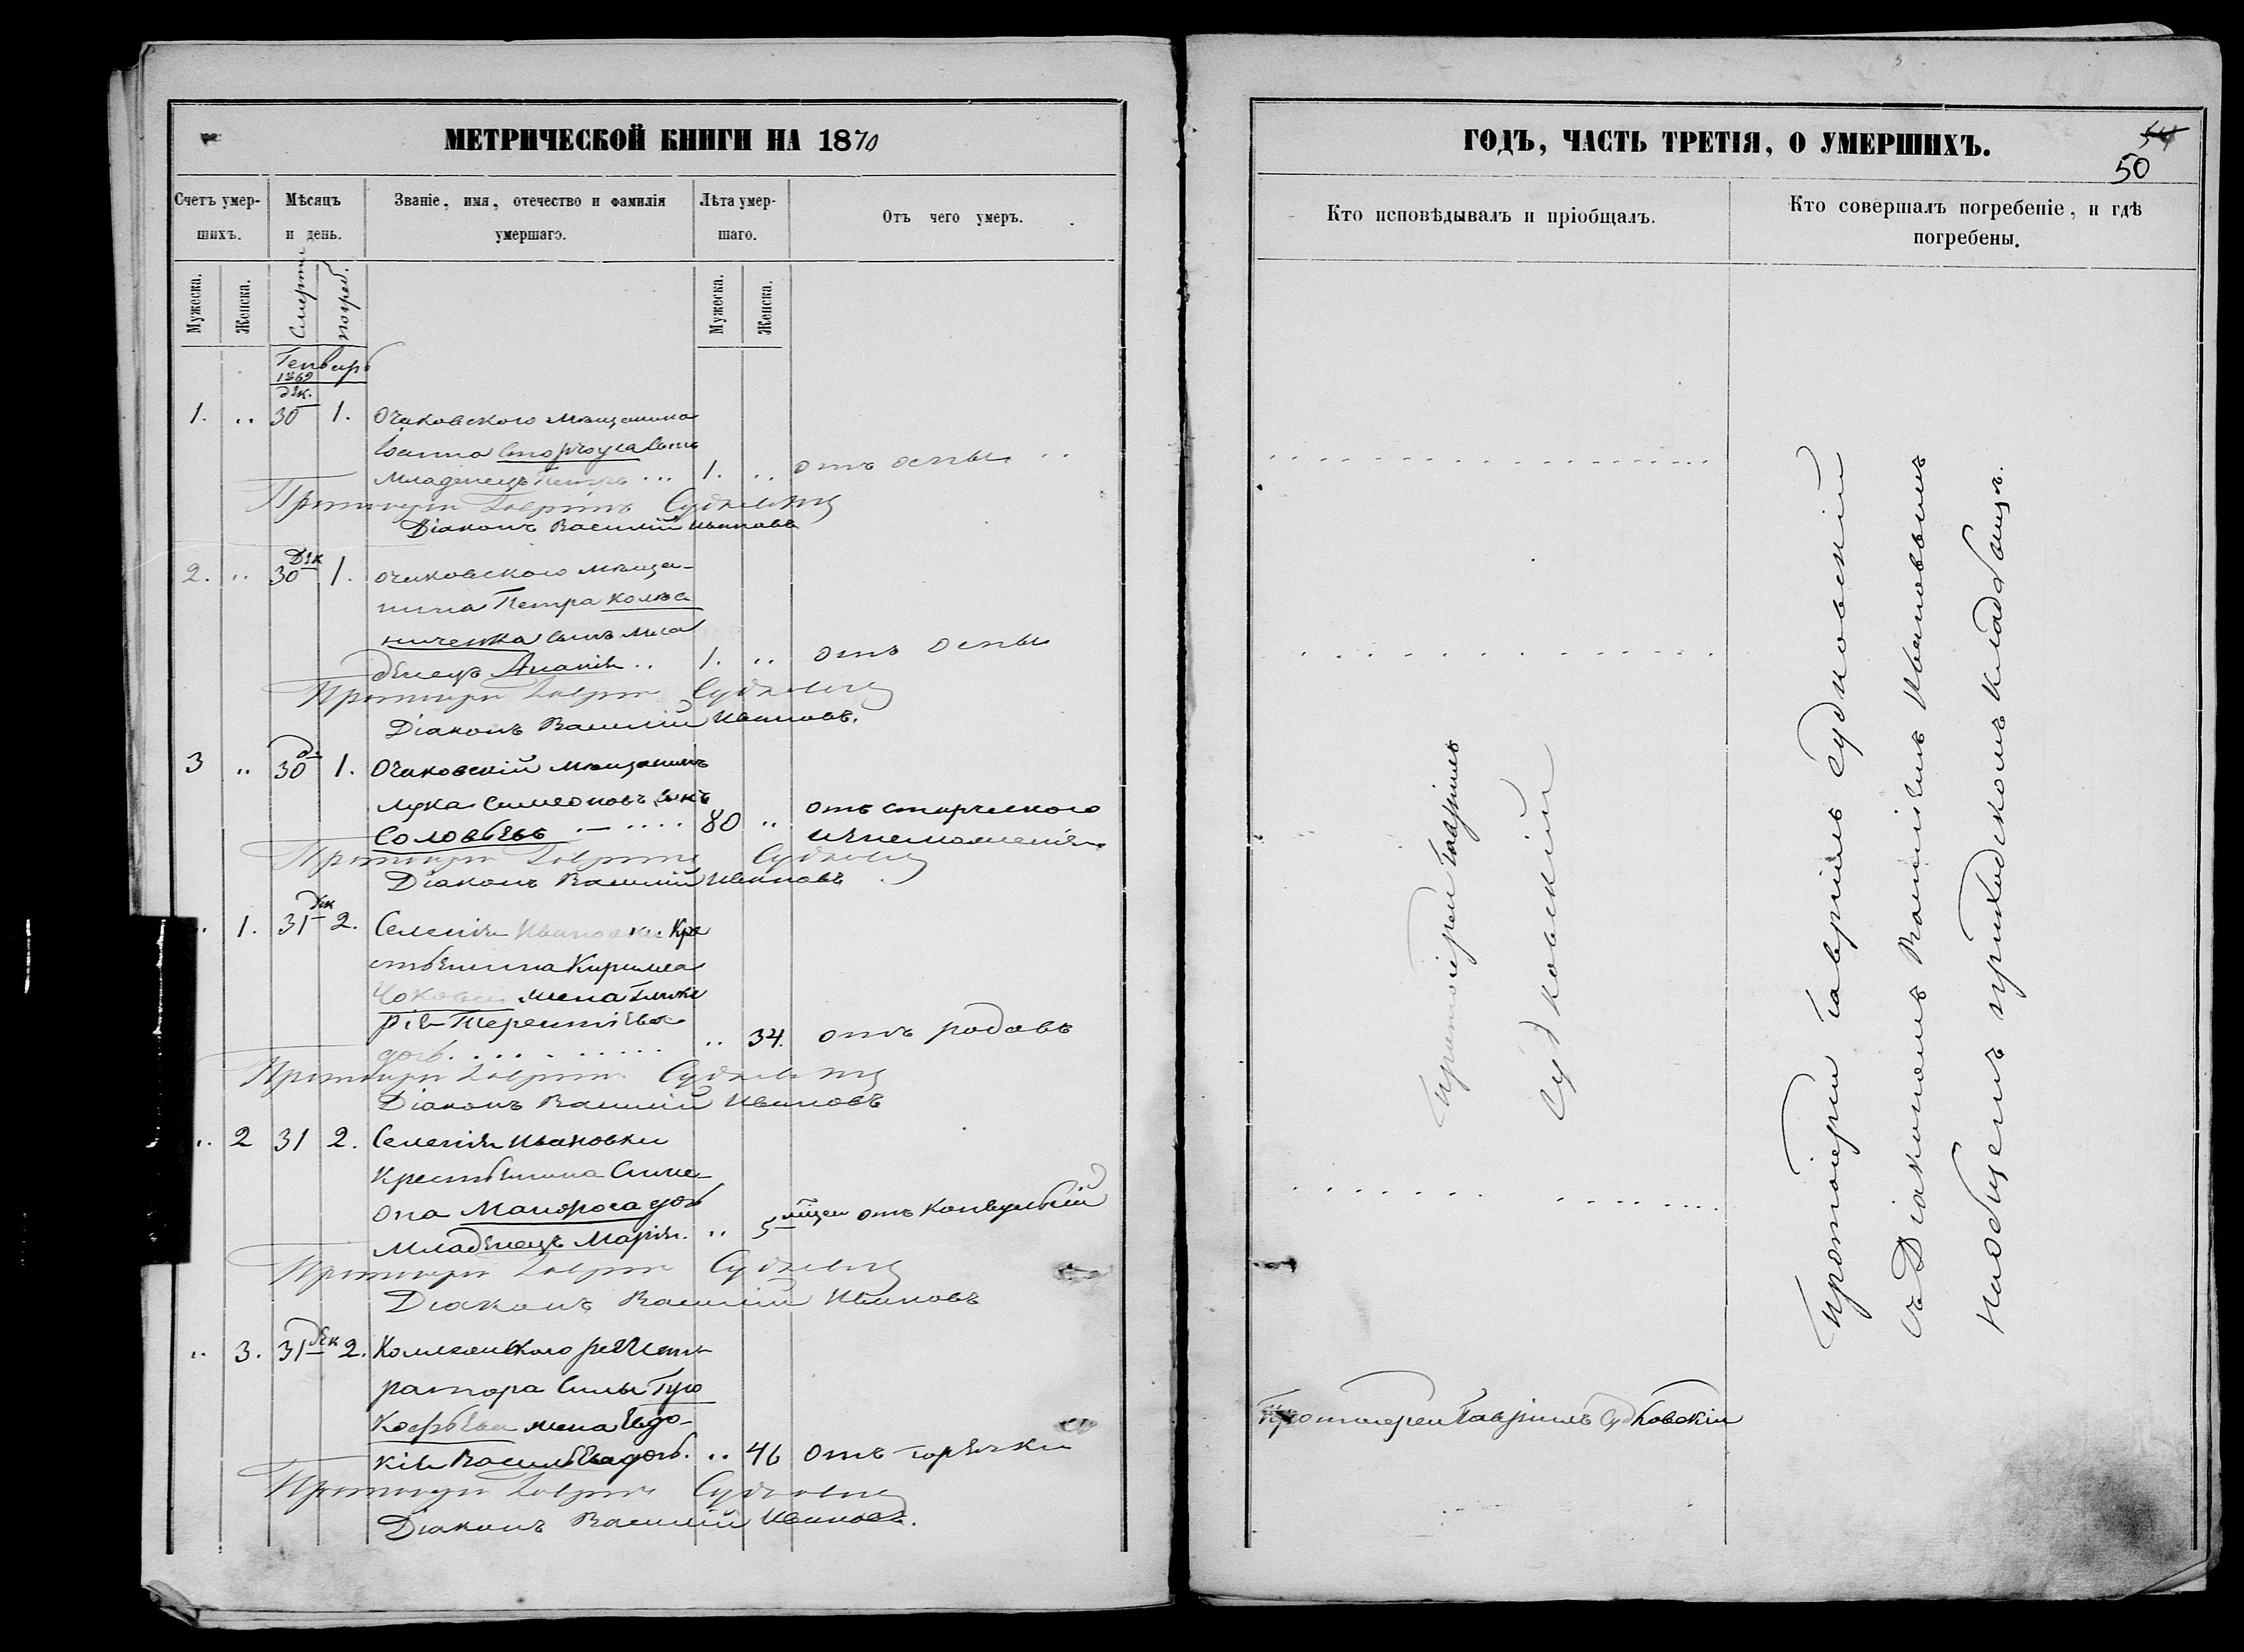 МЕТРИЧЕСКОЙ КНИГИ НА 1870
Счетъ умер-
шихъ.
Мѣсяцъ
и день.
Званіе, имя, отечество и фамилія
умершаго.
Лѣта умер-
шаго.
Отъ чего умеръ.
Мужеска.
Женска.
Смерти
погреб.
Мужеска.
Женска.
Генварь
1869
дек.
1. .. 30 1. Очаковскаго мѣщанина
Іоанна сынъ
младенецъ Петръ ... 1. .. отъ оспы ..
Протоіерей Гавріилъ Судковскій
Діаконъ Василій Ивановъ
2. .. 30 Дек 1. очаковскаго мѣща-
нина Петра Колес
ниченка сынъ мла
денецъ Ананія .. 1. .. отъ оспы
Протоіерей Гавріилъ Судковскій
Діаконъ Василій Ивановъ.
3 .. 30 1. Очаковскій мѣщанинъ
Лука Симеоновъ сынъ
Соловьевъ 80 .. отъ старческаго
изнеможенія.
Протоіерей Гавріилъ Судковскій
Діаконъ Василій Ивановъ
.. 1. 31 дек 2. Селенія Ивановки Кре
стьянина Кирилла
жена Глике
рія Терентіева
дочь. .. 34. отъ родовъ
Протоіерей Гавріилъ Судковскій
Діаконъ Василій Ивановъ
.. 2 31 2. Селенія Ивановки
крестьянина Симе-
она дочь
младенецъ Марія. .. 5 мѣсяц отъ конвульсій
Протоіерей Гавріилъ Судковскій
Діаконъ Василій Ивановъ
.. 3. 31 дек 2. Коллежскаго регист-
ратора Силы
жена Евдо-
кія Васильева дочь. .. 46 отъ горячки
Протоіерей Гавріилъ Судковскій
Діаконъ Василій Ивановъ.
ГОДЪ, ЧАСТЬ ТРЕТІЯ, О УМЕРШИХЪ.
50
Кто исповѣдывалъ и пріобщалъ.
Кто совершалъ погребеніе, и гдѣ
погребены.
Протоіерей Гавріилъ
Судковскій
Протоіерей Гавріилъ Судковскій
Протоіерей Гавріилъ Судковскій
съ Діакономъ Василіемъ Ивановымъ
На общемъ приходскомъ кладбищѣ.